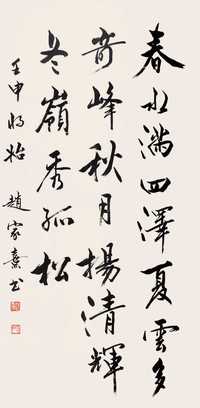 春水滿四澤夏雲多
奇峰秋月揚清輝
冬嶺秀孤松
壬申 趙家熹书